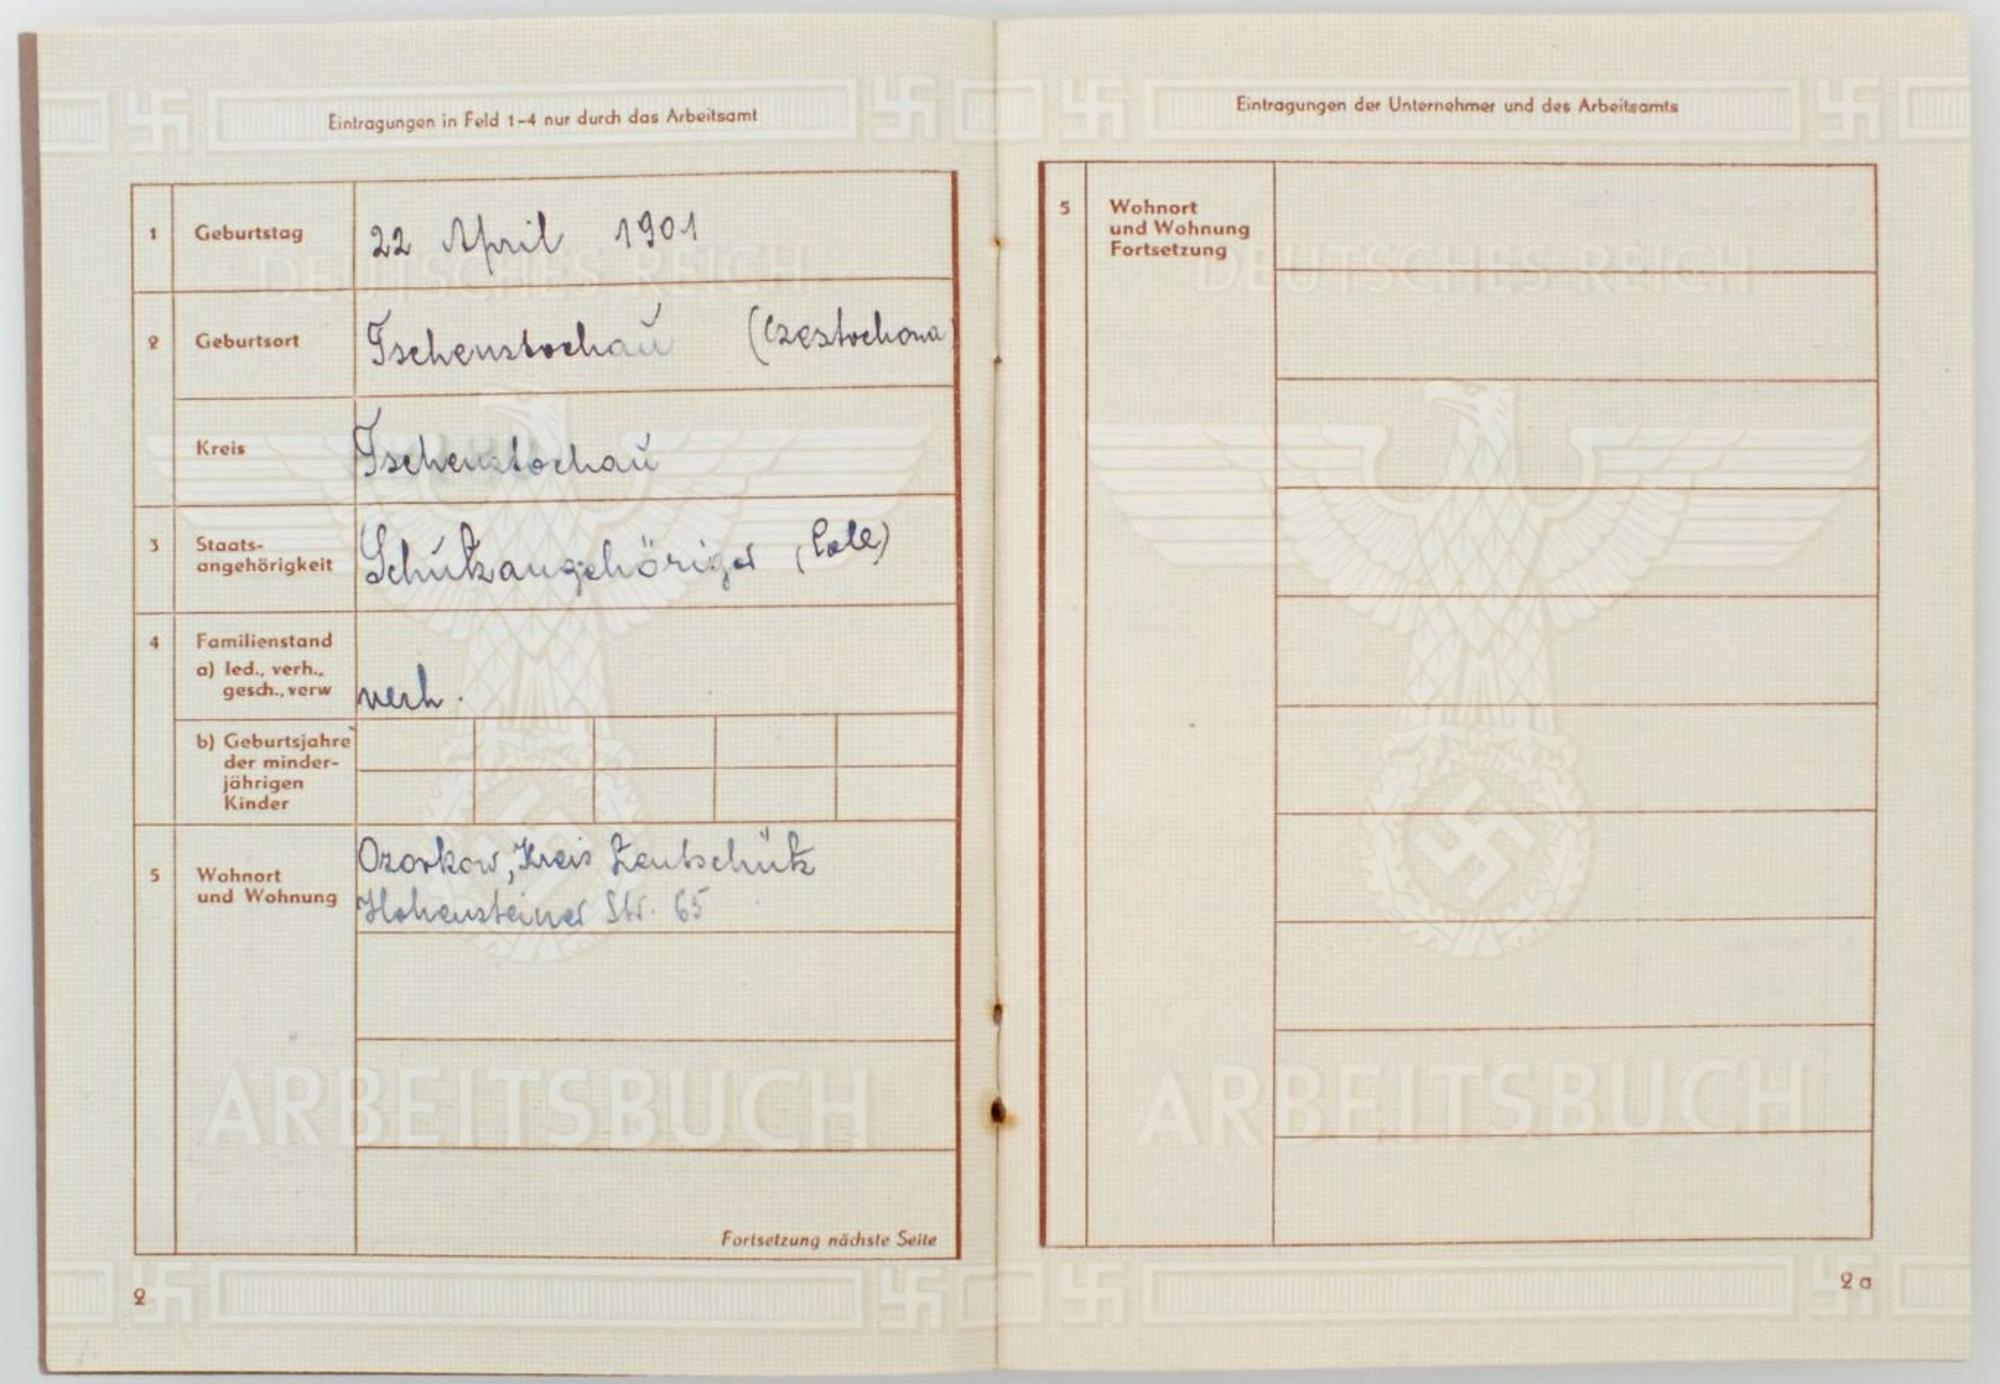 Eintragungen in Feld 1-4 nur durch das Arbeitsamt
DEUTSCHES REICH
1 Geburtstag 22 April 1901
2 Geburtsort Tschenstochau (Czestochowa)
Kreis Tschenstochau
3 Staats-
angehörigkeit Schutzangehöriger (Pole)
4 Familienstand
a) led., verh.,
gesch., verw verh.
b) Geburtsjahre
der minder-
jährigen
Kinder
5 Wohnort
und Wohnung
Ozorkow, Kreis Lentschütz
Hohensteiner Str. 65
ARBEITSBUCH
Fortsetzung nächste Seite
2
Eintragungen der Unternehmer und des Arbeitsamts
DEUTSCHES REICH
5 Wohnort
und Wohnung
Fortsetzung
ARBEITSBUCH
2 a